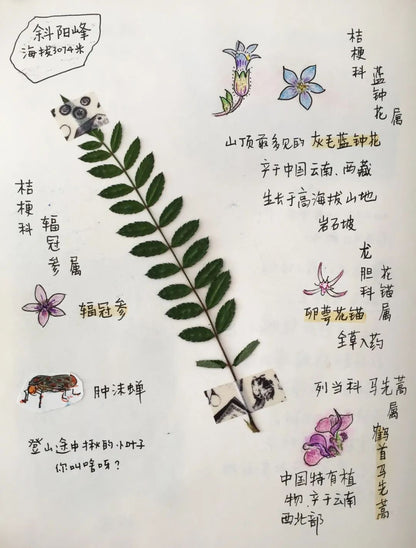 斜阳峰
海拔3074米
桔梗科
蓝钟花属
山顶最多见的灰毛蓝钟花
产于中国云南、西藏
生长于高海拔山地
岩石坡
桔梗科
辐冠参属
辐冠参
龙胆科
花锚属
卵萼花锚
全草入药
肿沫蝉
列当科 马先蒿属
鹤首马先蒿
中国特有植
物.产于云南
西北部
登山途中揪的小叶子
你叫啥呀？